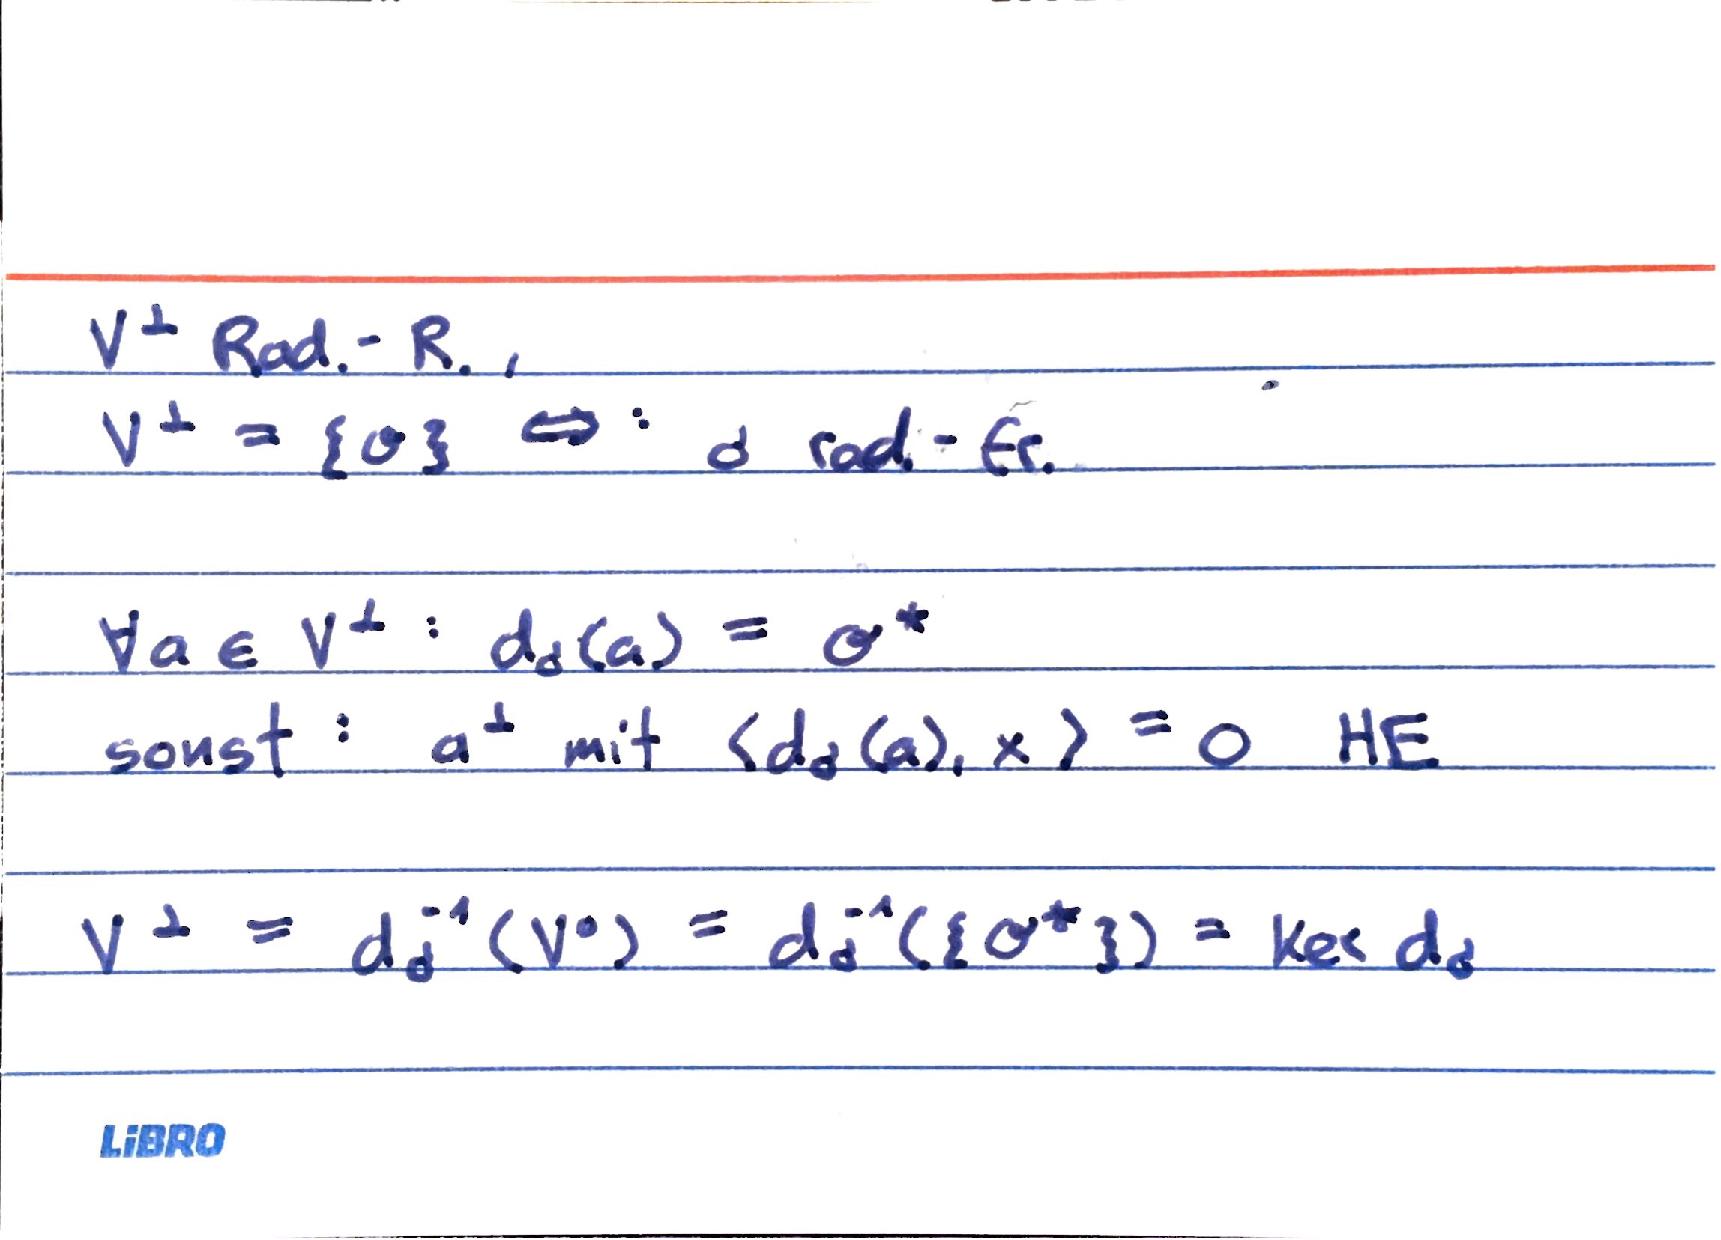 V⊥ Rad.-R.,
V⊥ = {σ} ⇔: δ rad.-fr.
∀a ∈ V⊥ : d_δ(a) = σ*
sonst : a⊥ mit ⟨d_δ(a), x⟩ = 0 HE
V⊥ = d_δ⁻¹(V°) = d_δ⁻¹({σ*}) = ker d_δ
LiBRO